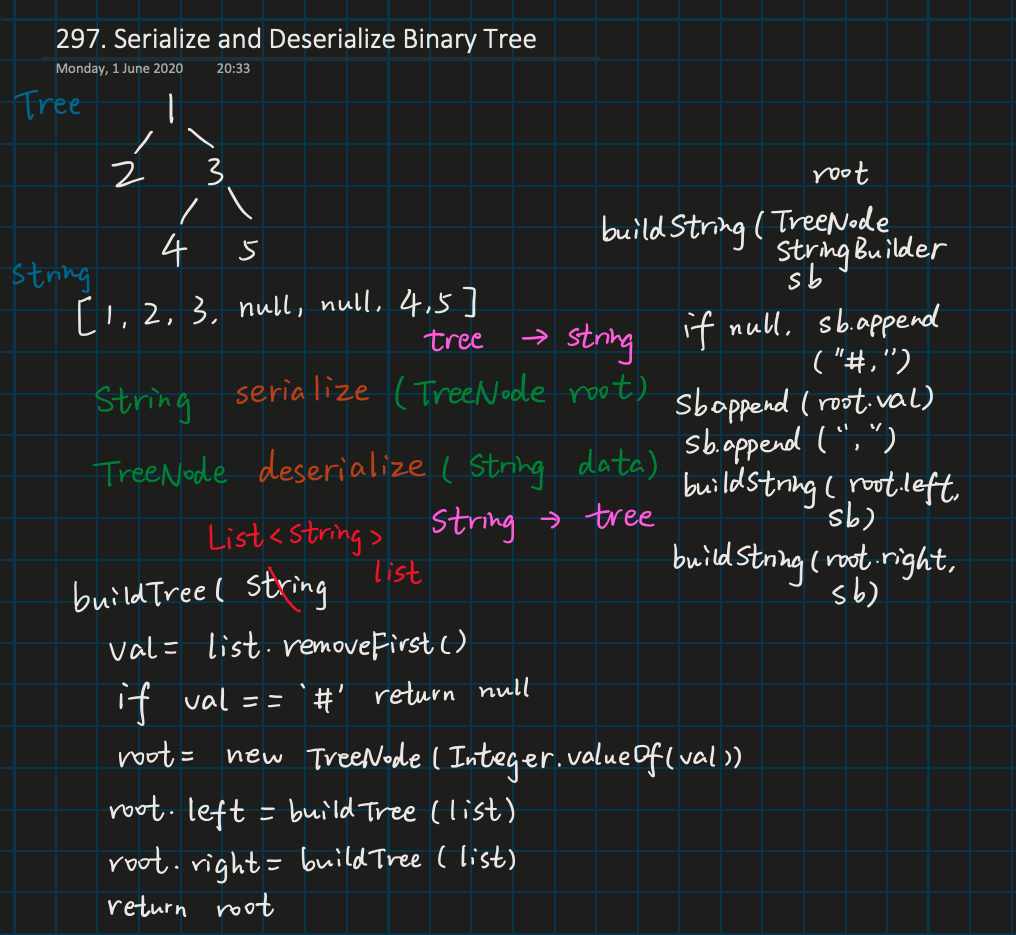 297. Serialize and Deserialize Binary Tree
Monday, 1 June 2020 20:33
Tree
1
2 3
4 5
String
[ 1, 2, 3, null, null, 4,5 ]
tree → string
String serialize (TreeNode root)
TreeNode deserialize ( String data)
String → tree
List<String>
list
buildTree ( String
val = list.removeFirst()
if val == '#' return null
root = new TreeNode (Integer.valueOf(val))
root.left = buildTree (list)
root.right = buildTree ( list)
return root
root
buildString ( TreeNode
StringBuilder
sb
if null, sb.append
("#,")
Sbappend ( root.val)
sb.append (",")
buildString ( root.left,
sb)
buildString (root.right,
sb)